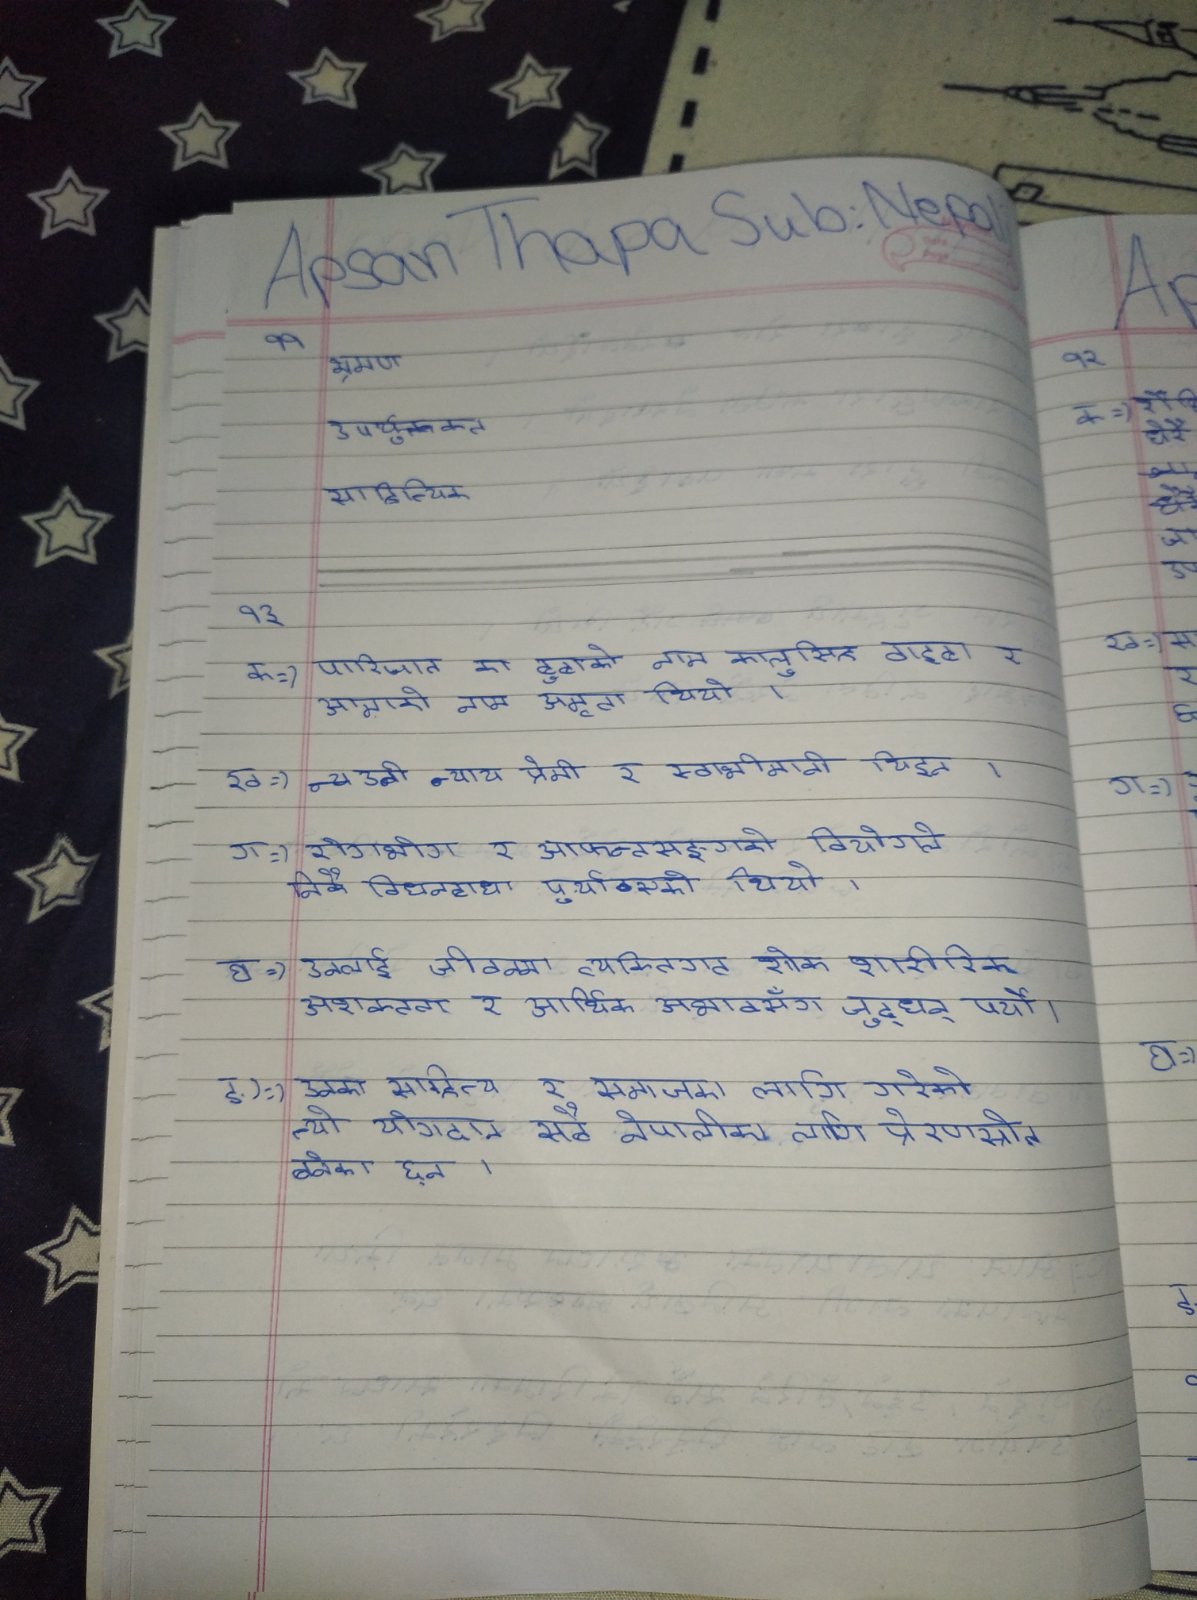 Apsan Thapa Sub: Nepali
११
भ्रमण
उपर्युक्त
साहित्यिक
१३
क=) पारिजात का बुबाको नाम कालुसिह वाइबा र
आमाको नाम अमृता थियो ।
ख=) उनी न्याय प्रेमी र स्वाभीमानी थिइन ।
ग=) रोगभोग र आफन्तसङ्गको वियोगले
निकै पुर्याएको थियो ।
घ=) उनलाई जीवनमा व्यक्तिगत शोक शारीरिक
अशक्तता र आर्थिक अभावसँग जुद्धन् पर्यो ।
ङ)=) उनका साहित्य र समाजका लागि गरेको
त्यो योगदान सबै नेपालीका लागि प्रेरणस्रोत
बनेका छन ।
Ap
१२
क=)
ख=)
ग=)
घ=)